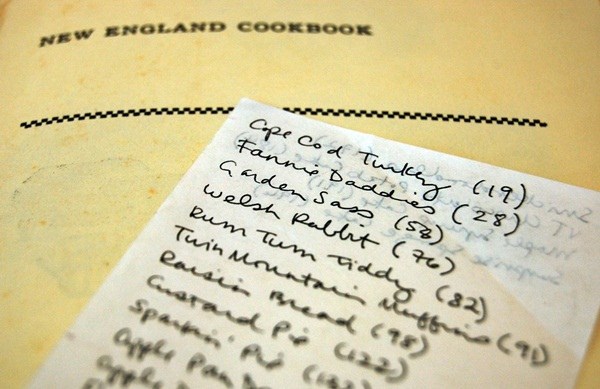 NEW ENGLAND COOKBOOK
Cape Cod Turkey (19)
Fannie Daddies (28)
Garden Sass (53)
Welsh Rabbit (76)
Rum Tum Tiddy (82)
Twin Mountain Muffins (91)
Raisin Bread (98)
Custard Pie (122)
Sparkin' Pie
Apple Pan
Apple